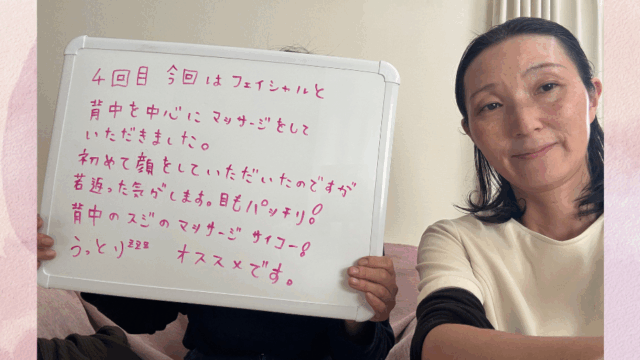 4回目 今回はフェイシャルと
背中を中心にマッサージをして
いただきました。
初めて顔をしていただいたのですが
若返った気がします。目もパッチリ!
背中のスジのマッサージサイコー!
うっとり zzz オススメです。